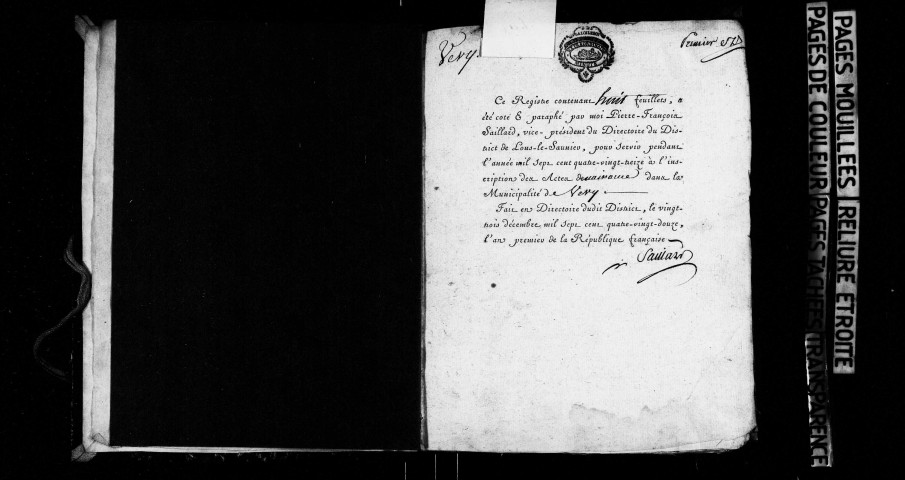 Very
Premier
Ce Registre contenant huit feuillets, a
été coté & paraphé par moi Pierre-François
Saillard, vice-président du Directoire du Dis-
trict de Lons-le-Saunier, pour servir pendant
l'année mil sept cent quatre-vingt-treize à l'ins-
cription des Actes de naissance dans la
Municipalité de Very.
Fait en Directoire dudit District, le vingt-
trois décembre mil sept cent quatre-vingt-douze,
l'an premier de la République française
Saillard
PAGES MOUILLEES RELIURE ETROITE
PAGES DE COULEUR PAGES TACHEES TRANSPARENCE